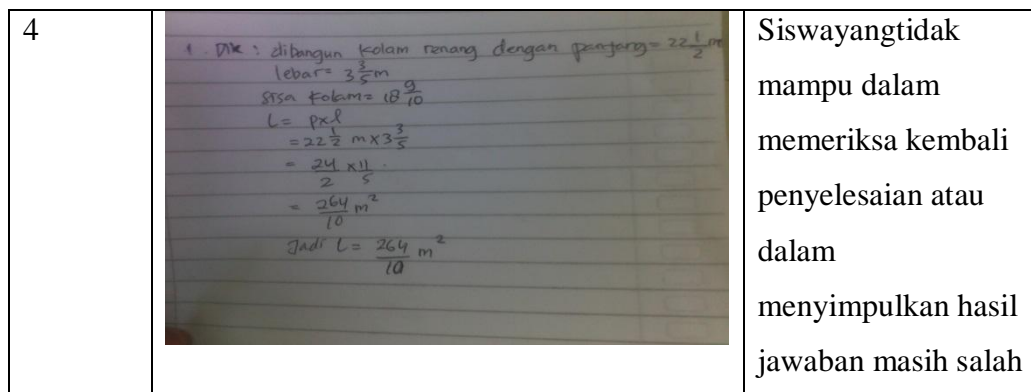 4
1. Dik : dibangun kolam renang dengan panjang = 22 1/2 m
lebar = 3 3/5 m
sisa kolam = 18 9/10
L = p x l
= 22 1/2 m x 3 3/5
= 24/2 x 11/5
= 264/10 m²
Jadi L = 264/10 m²
Siswayangtidak
mampu dalam
memeriksa kembali
penyelesaian atau
dalam
menyimpulkan hasil
jawaban masih salah